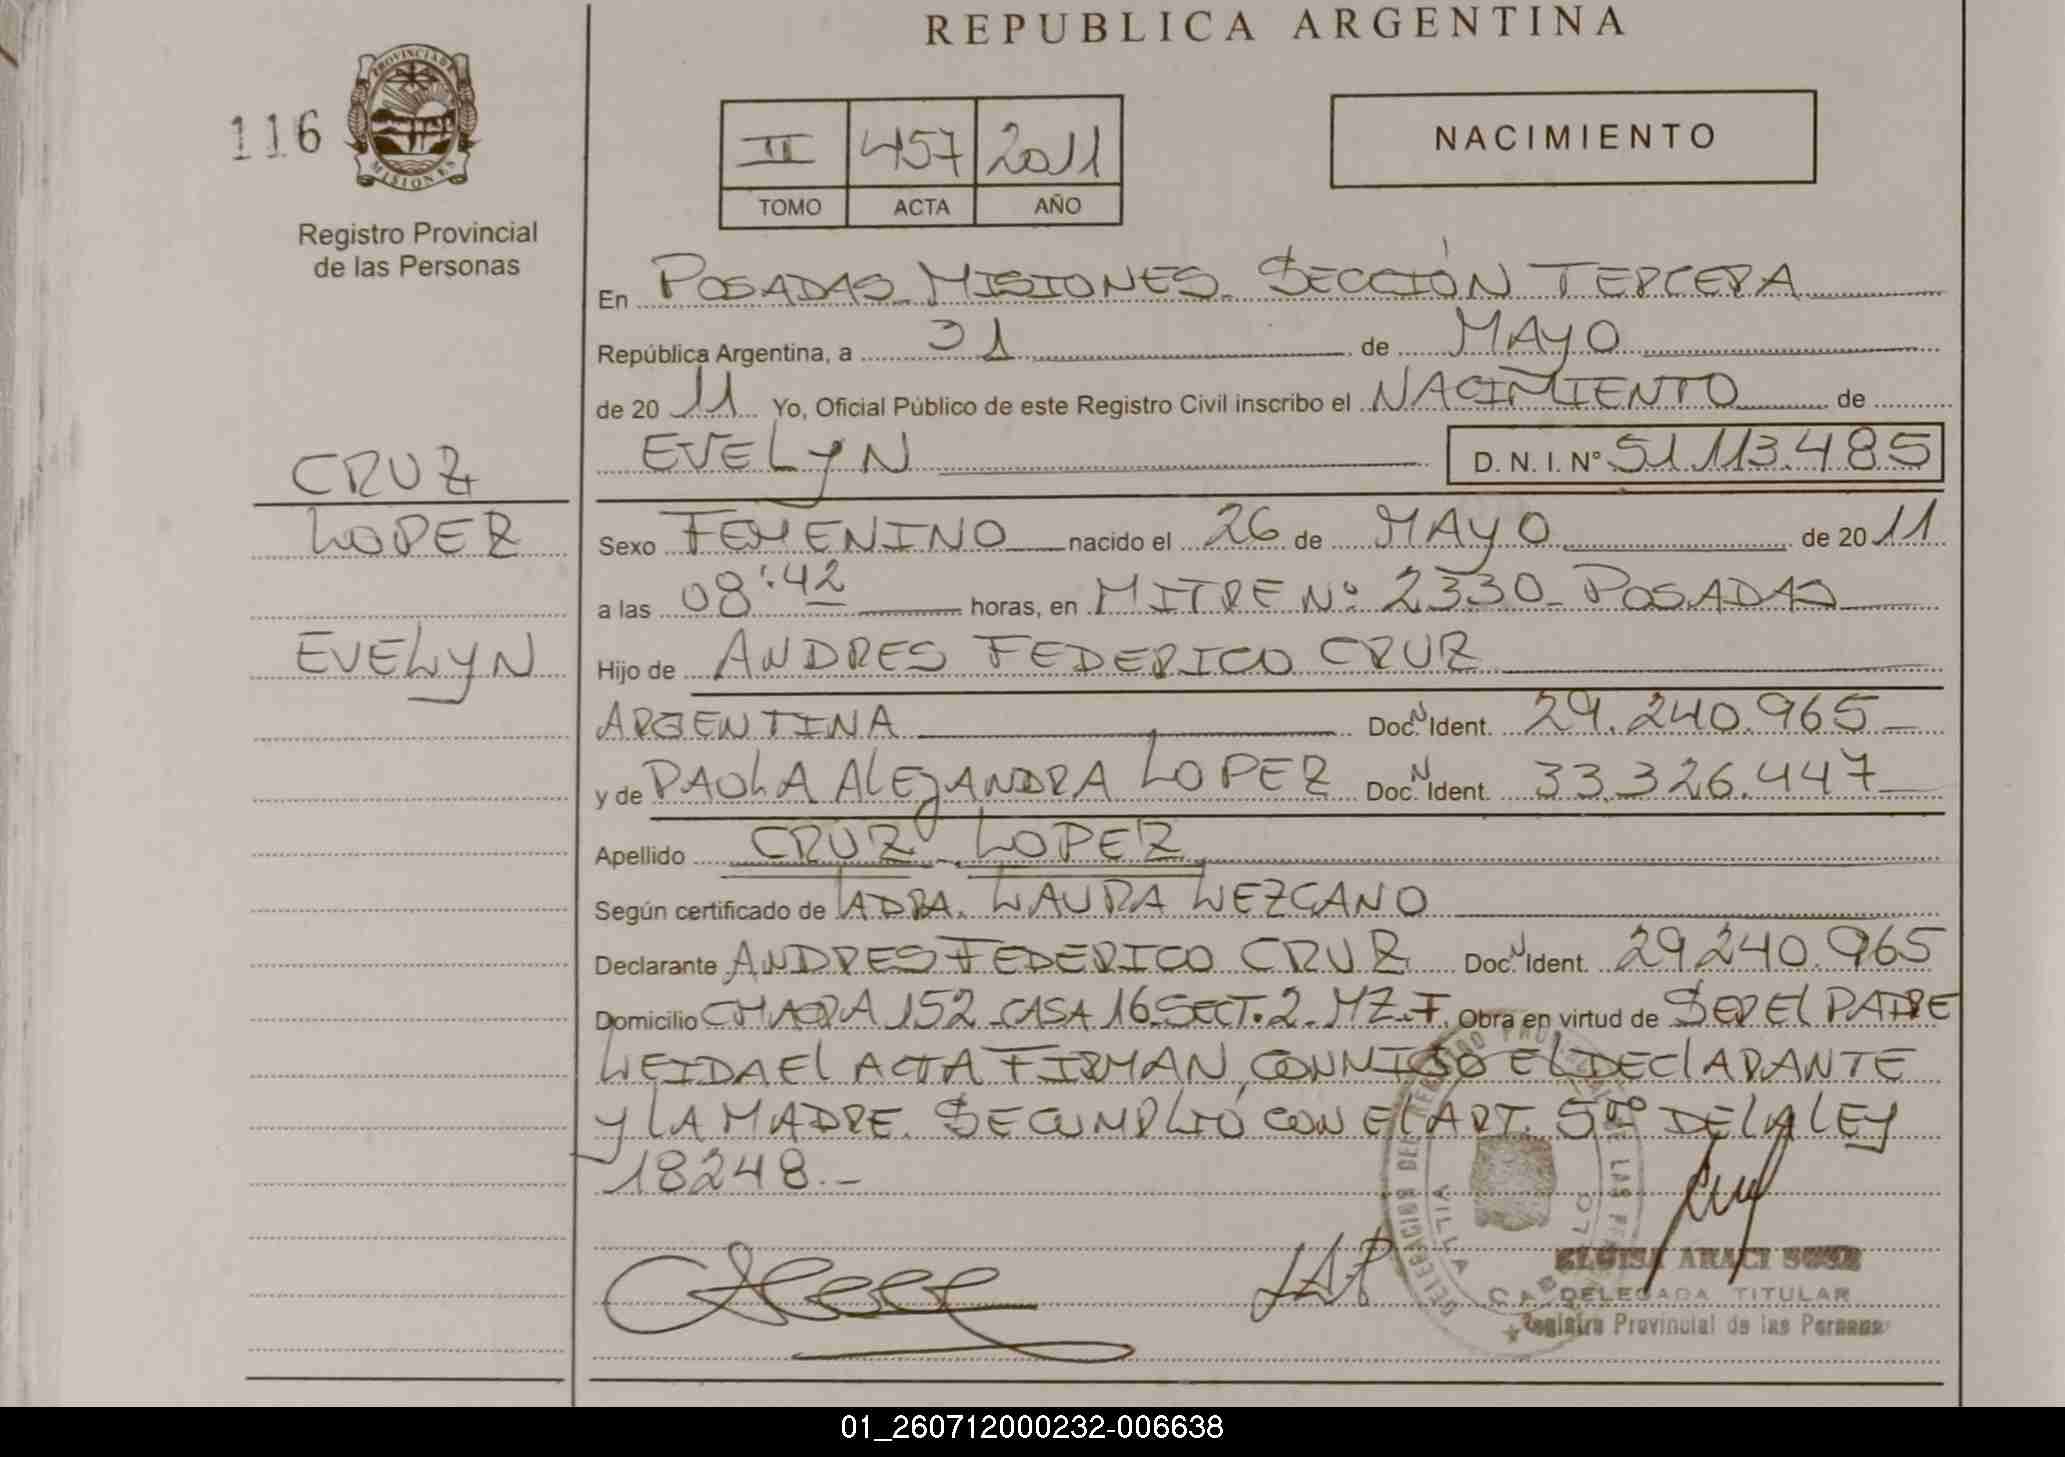 REPUBLICA ARGENTINA
116
PROVINCIA DE
MISIONES
Registro Provincial
de las Personas
II 457 2011
TOMO ACTA AÑO
NACIMIENTO
En POSADAS_MISIONES_ SECCIÓN TERCERA
República Argentina, a 31 de MAYO
de 20 11 Yo, Oficial Público de este Registro Civil inscribo el NACIMIENTO de
EVELYN D. N. I. Nº 51.113.485
CRUZ
LOPEZ
EVELYN
Sexo FEMENINO nacido el 26 de MAYO de 20 11
a las 08:42 horas, en MITRE Nº 2330_ POSADAS
Hijo de ANDRES FEDERICO CRUZ
ARGENTINA Doc. N Ident. 29.240.965_
y de PAOLA ALEJANDRA LOPEZ Doc. N Ident. 33.326.447_
Apellido CRUZ _ LOPEZ
Según certificado de LA DRA. LAURA LEZCANO
Declarante ANDRES FEDERICO CRUZ Doc. N Ident. 29.240.965
Domicilio CHACRA 152_CASA 16_SECT.2_MZ.F. Obra en virtud de SER EL PADRE
LEIDA EL ACTA FIRMAN CONMIGO EL DECLARANTE
Y LA MADRE. SE CUMPLIÓ CON EL ART. 5to DE LA LEY
18248._
LAP
VILLA
CABELLO
ELOISA ARACI SOSA
DELEGADA TITULAR
Registro Provincial de las Personas
01_260712000232-006638